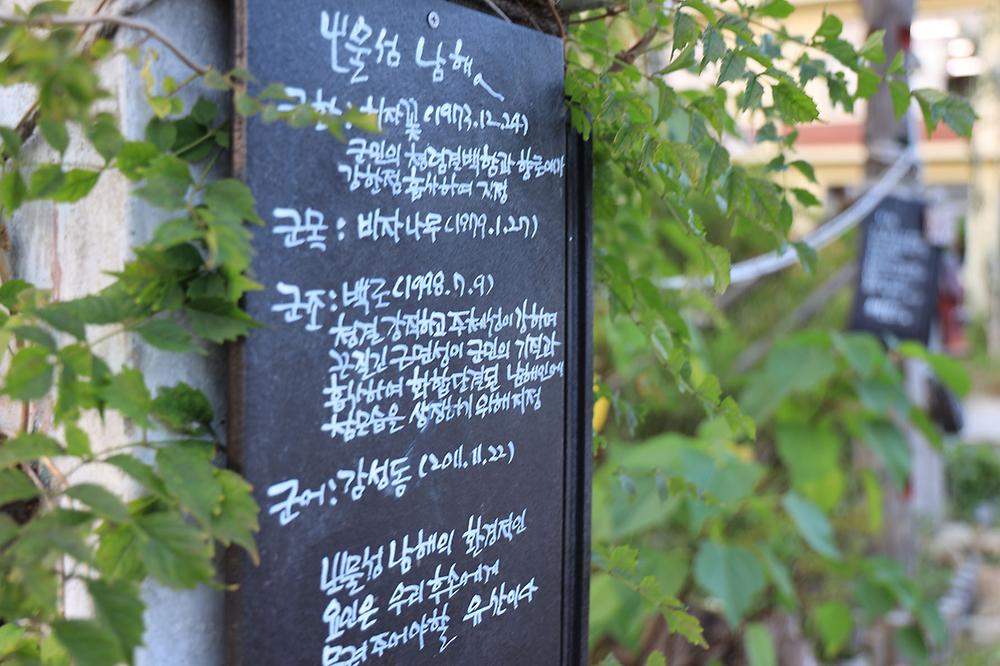 보물섬 남해
군화: 치자꽃 (1973.12.24)
군민의 청렴결백함과 향토애가
강한점 흡사하여 지정
군목: 비자나무 (1979.1.27)
군조: 백로 (1998.7.9)
청결 강직하고 주체성이 강하며
끈질긴 근면성이 군민의 기질과
흡사하여 화합 단결된 남해인에
참모습은 상징하기 위해 지정
군어: 감성돔 (2011.11.22)
보물섬 남해의 환경적인
요인은 우리 후손에게
물려 주어야할 유산이다